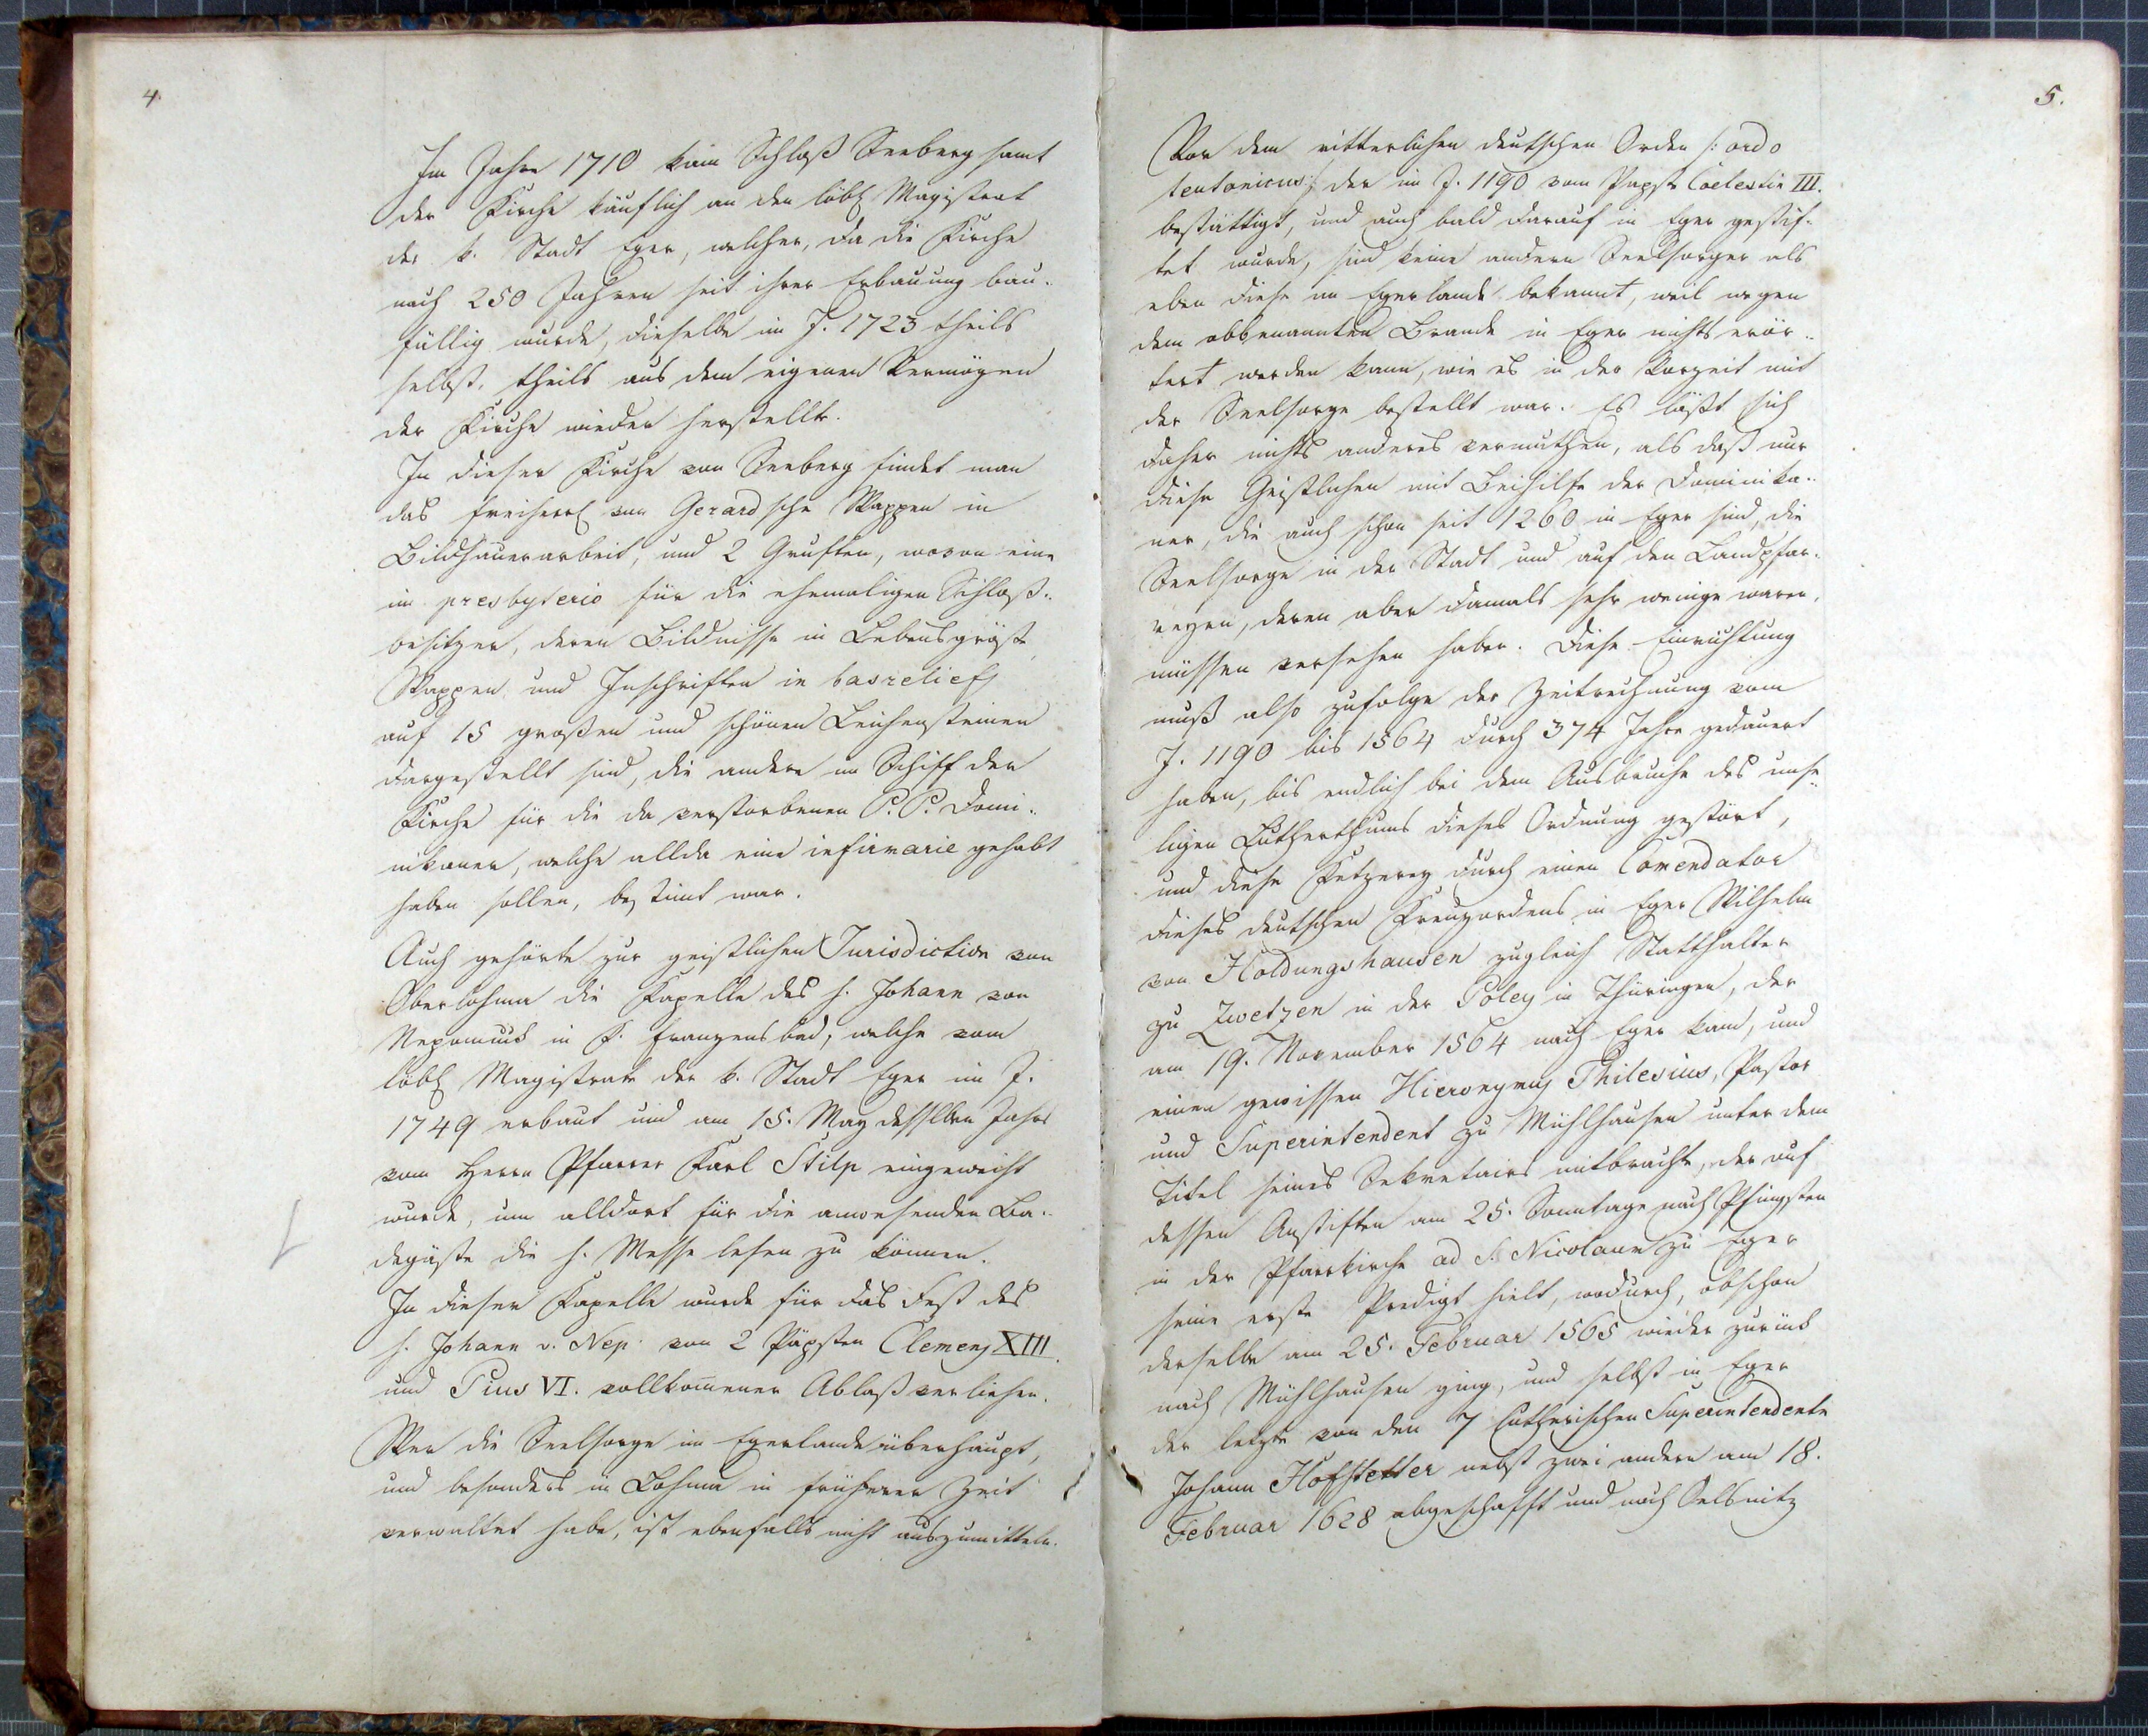 4.
Im Jahre 1710 kam Schloß Seeberg samt
der Kirche käuflich an den löbl Magistrat
der k. Stadt Eger, welcher, da die Kirche
nach 250 Jahren seit ihrer Erbauung bau-
fällig wurde, dieselbe im J. 1723 theils
selbst, theils aus dem eigenen Vermögen
der Kirche wieder herstellte.
In dieser Kirche von Seeberg findet man
das freiherrl von Gerardsche Wappen in
Bildhauerarbeit, und 2 Gruften, wovon eine
im presbyterio für die ehemaligen Schloß-
besitzer, deren Bildnisse in Lebensgröße
Wappen und Inschriften in basrelief
auf 15 großen und schönen Leichensteinen
dargestellt sind, die andere im Schiff der
Kirche für die da verstorbenen P. P. Domi-
nikaner, welche allda eine infirmarie gehabt
haben sollen, bestimt war.
Auch gehörte zur geistlichen Jurisdiction von
Oberlohma die Kapelle des h. Johann von
Nepomuck in K. Franzensbad, welche vom
löbl Magistrate der k. Stadt Eger im J.
1749 erbaut und am 15. May desselben Jahrs
vom Herrn Pfarrer Karl Stilp eingeweiht
wurde, um alldort für die anwesenden Ba-
degäste die h. Messe lesen zu können.
In dieser Kapelle wurde für das Fest des
h. Johann v. Nep. von 2 Päpsten Clemens XIII.
und Pius VI. vollkomener Ablaß verliehen.
Wer die Seelsorge im Egerlande überhaupt,
und besonders in Lohma in früherer Zeit
verwaltet habe, ist ebenfalls nicht auszumitteln.
5.
Vor dem ritterlichen deutschen Orden /: ordo
teutonicus :/ der im J. 1190 vom Papste Coelestin III.
bestättigt, und auch bald darauf in Eger gestif-
tet wurde, sind keine andern Seelsorger als
eben diese im Egerlande bekannt, weil wegen
dem obbenannten Brande in Eger nichts erör-
tert werden kann, wie es in der Vorzeit mit
der Seelsorge bestellt war. Es läßt sich
daher nichts anderes vermuthen, als daß nur
diese Geistlichen mit Beihilfe der Dominika-
ner, die auch schon seit 1260 in Eger sind, die
Seelsorge in der Stadt und auf den Landpfar-
reyen, deren aber damals sehr weinge waren,
müssen versehen haben. Diese Einrichtung
muß also zufolge der Zeitrechnung vom
J. 1190 bis 1564 durch 374 Jahre gedauert
haben, bis endlich bei dem Ausbruche des unse-
ligen Lutherthums dieses Ordnung gestört,
und diese Ketzerey durch einen Comendator
dieses deutschen Kreuzordens in Eger Wilhelm
von Holdungshausen zugleich Statthalter
zu Zwetzen in der Poley in Thüringen, der
am 19. November 1564 nach Eger kam, und
einen gewissen Hieronymus Thilesius, Pastor
und Superintendent zu Mühlhausen unter dem
Titel seines Sekretairs mitbrachte, der auf
dessen Anstiften am 25. Sonntage nach Pfingsten
in der Pfarrkirche ad S. Nicolaum zu Eger
seine erste Predigt hielt, wodurch, obschon
derselbe am 25. Februar 1565 wieder zurück
nach Mühlhausen ging, und selbst in Eger
der letzte von den 7 Lutherischen Superintendente
Johann Hofstetter nebst zwei andern am 18.
Februar 1628 abgeschafft und nach Oelsnitz